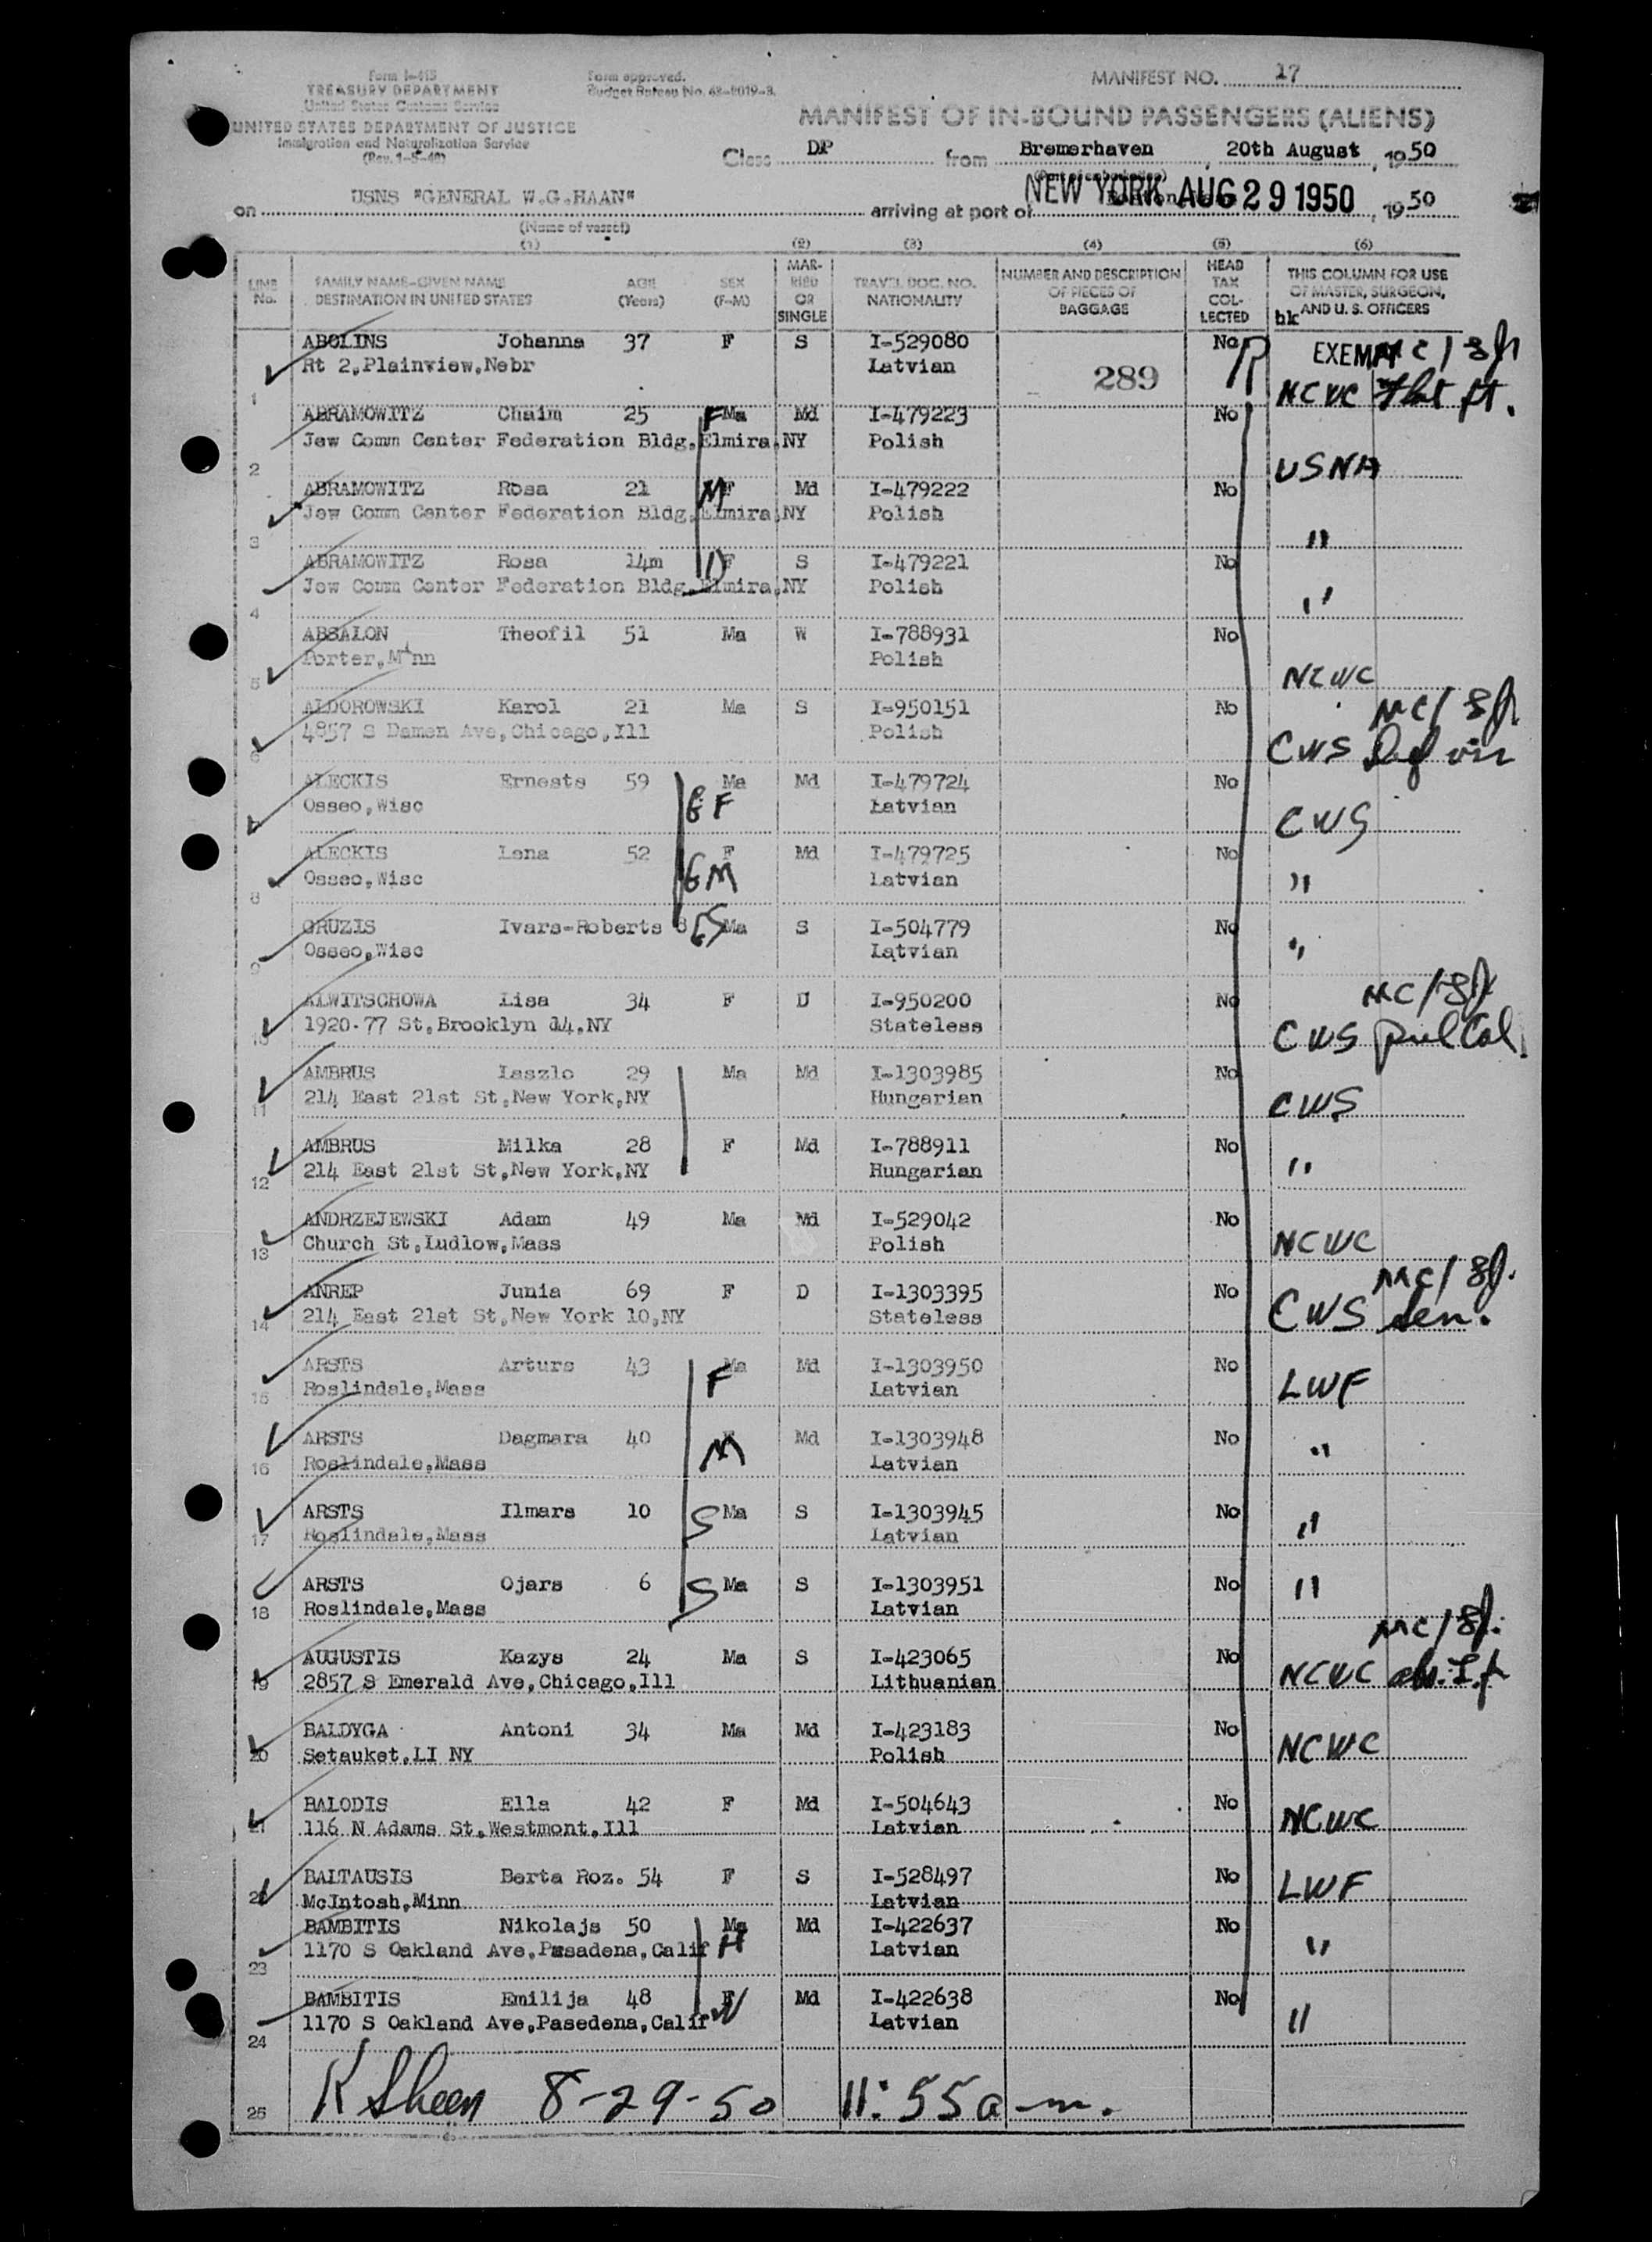 Form I-415
TREASURY DEPARTMENT
United States Customs Service
UNITED STATES DEPARTMENT OF JUSTICE
Immigration and Naturalization Service
(Rev. 1-5-48)
Form approved.
Budget Bureau No. 43-R019-3.
MANIFEST NO. 17
MANIFEST OF IN-BOUND PASSENGERS (ALIENS)
Class DP from Bremerhaven, 20th August, 1950
(Port of embarkation)
on USNS "GENERAL W.G.HAAN" arriving at port of NEW YORK AUG 29 1950, 1950
(Name of vessel)
(1) (2) (3) (4) (5) (6)
LINE No. FAMILY NAME-GIVEN NAME DESTINATION IN UNITED STATES AGE (Years) SEX (F-M) MARRIED OR SINGLE TRAVEL DOC. NO. NATIONALITY NUMBER AND DESCRIPTION OF PIECES OF BAGGAGE HEAD TAX COLLECTED THIS COLUMN FOR USE OF MASTER, SURGEON, AND U. S. OFFICERS
bk
ABOLINS Johanna 37 F S I-529080 No EXEMPT MC/
Rt 2,Plainview,Nebr Latvian 289
1 NCWC
ABRAMOWITZ Chaim 25 F Ma Md I-479223 No
Jew Comm Center Federation Bldg,Elmira,NY Polish
2 USNA
ABRAMOWITZ Rosa 21 M F Md I-479222 No
Jew Comm Center Federation Bldg,Elmira,NY Polish
3 "
ABRAMOWITZ Rosa 14m D F S I-479221 No
Jew Comm Center Federation Bldg,Elmira,NY Polish
4 "
ABSALON Theofil 51 Ma W I-788931 No
Porter,Minn Polish
5 NCWC
ALDOROWSKI Karol 21 Ma S I-950151 No MC/
4857 S Damen Ave,Chicago,Ill Polish
6 CWS
ALECKIS Ernests 59 Ma Md I-479724 No
Osseo,Wisc GF Latvian
7 CWS
ALECKIS Lena 52 F Md I-479725 No
Osseo,Wisc GM Latvian "
8
GRUZIS Ivars-Roberts 8 GS Ma S I-504779 No
Osseo,Wisc Latvian "
9
ALWITSCHOWA Lisa 34 F D I-950200 No MC/
1920-77 St,Brooklyn 14,NY Stateless
10 CWS
AMBRUS Laszlo 29 Ma Md I-1303985 No
214 East 21st St,New York,NY Hungarian
11 CWS
AMBRUS Milka 28 F Md I-788911 No
214 East 21st St,New York,NY Hungarian
12 "
ANDRZEJEWSKI Adam 49 Ma Md I-529042 No
Church St,Ludlow,Mass Polish
13 NCWC
ANREP Junia 69 F D I-1303395 No MC/
214 East 21st St,New York 10,NY Stateless
14 CWS sen.
ARSTS Arturs 43 Ma Md I-1303950 No
Roslindale,Mass F Latvian
15 LWF
ARSTS Dagmara 40 F Md I-1303948 No
Roslindale,Mass M Latvian
16 "
ARSTS Ilmars 10 S Ma S I-1303945 No
Roslindale,Mass Latvian
17 "
ARSTS Ojars 6 S Ma S I-1303951 No
Roslindale,Mass Latvian
18 "
AUGUSTIS Kazys 24 Ma S I-423065 No MC/
2857 S Emerald Ave,Chicago,Ill Lithuanian
19 NCWC
BALDYGA Antoni 34 Ma Md I-423183 No
Setauket,LI NY Polish
20 NCWC
BALODIS Ella 42 F Md I-504643 No
116 N Adams St,Westmont,Ill Latvian
21 NCWC
BALTAUSIS Berta Roz. 54 F S I-528497 No
McIntosh,Minn Latvian
22 LWF
BAMBITIS Nikolajs 50 Ma Md I-422637 No
1170 S Oakland Ave,Pasadena,Calif H Latvian
23 "
BAMBITIS Emilija 48 F Md I-422638 No
1170 S Oakland Ave,Pasedena,Calif W Latvian
24 "
25 K Sheen 8-29-50 11:55 a-m.